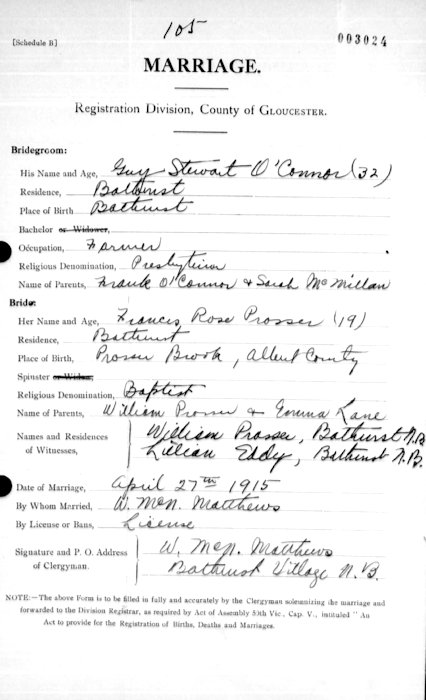 105
[Schedule B]
003024
MARRIAGE.
Registration Division, County of GLOUCESTER.
Bridegroom:
His Name and Age, Guy Stewart O'Connor (32)
Residence, Bathurst
Place of Birth Bathurst
Bachelor or Widower,
Occupation, Farmer
Religious Denomination, Presbyterian
Name of Parents, Frank O'Connor & Sarah McMillan
Bride:
Her Name and Age, Francis Rose Prosser (19)
Residence, Bathurst
Place of Birth, Prosser Brook, Albert County
Spinster or Widow,
Religious Denomination, Baptist
Name of Parents, William Prosser & Emma Lane
Names and Residences William Prosser, Bathurst N.B.
of Witnesses, Lillian Eddy, Bathurst N.B.
Date of Marriage, April 27th 1915
By Whom Married, W. McN. Matthews
By License or Bans, License
Signature and P. O. Address W. McN. Matthews
of Clergyman. Bathurst Village N.B.
NOTE:—The above Form is to be filled in fully and accurately by the Clergyman solemnizing the marriage and
forwarded to the Division Registrar, as required by Act of Assembly 50th Vic, Cap. V., intituled "An
Act to provide for the Registration of Births, Deaths and Marriages.